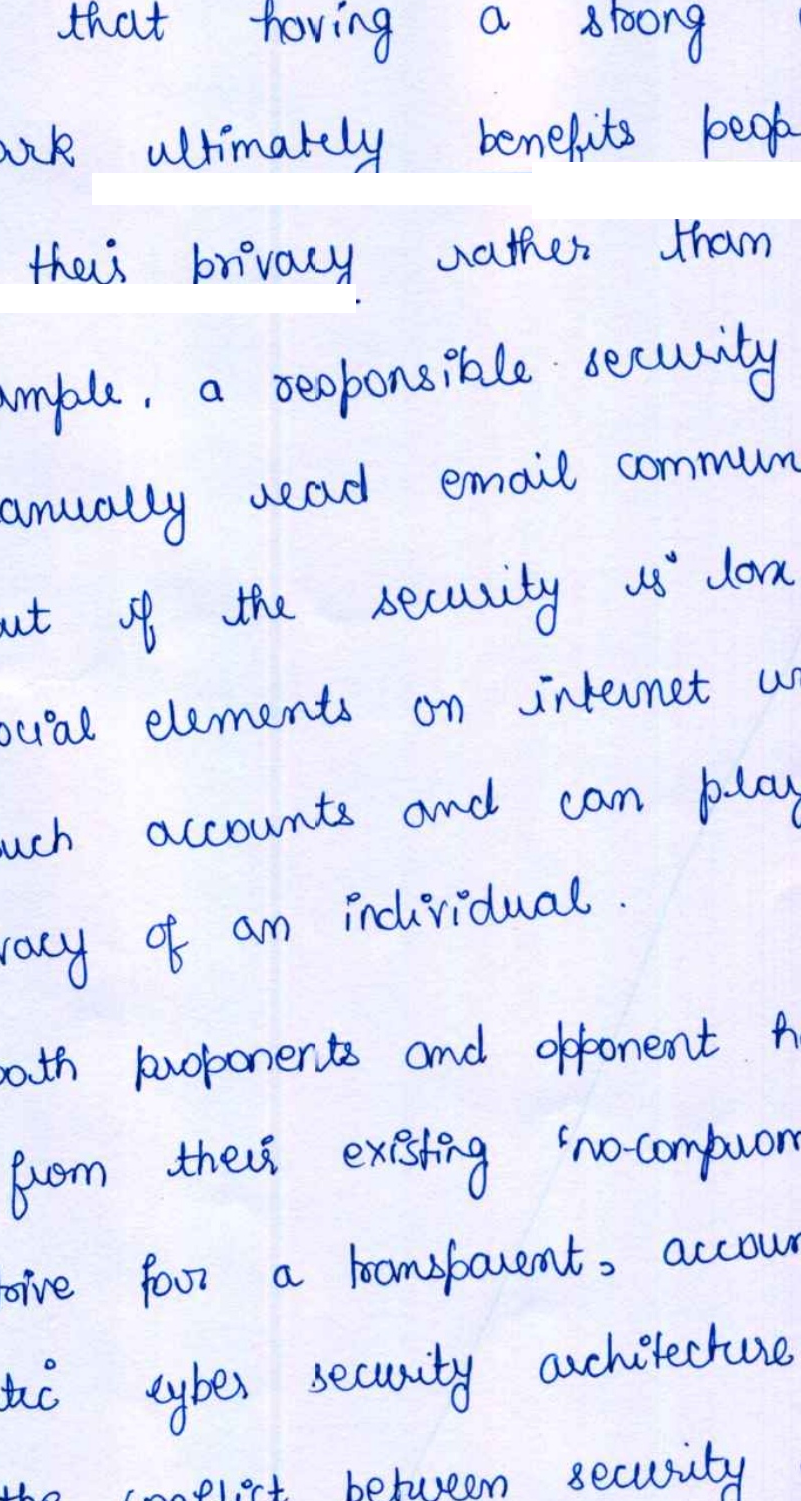 that having a strong
ark ultimately benefits peop
their privacy rather than
ample, a responsible security
anually read email commun
ut if the security is lax
ocial elements on internet w
uch accounts and can play
vacy of an individual.
both proponents and opponent h
from their existing 'no-comprom
rive for a transparent, accoun
tic cyber security architecture
the conflict between security